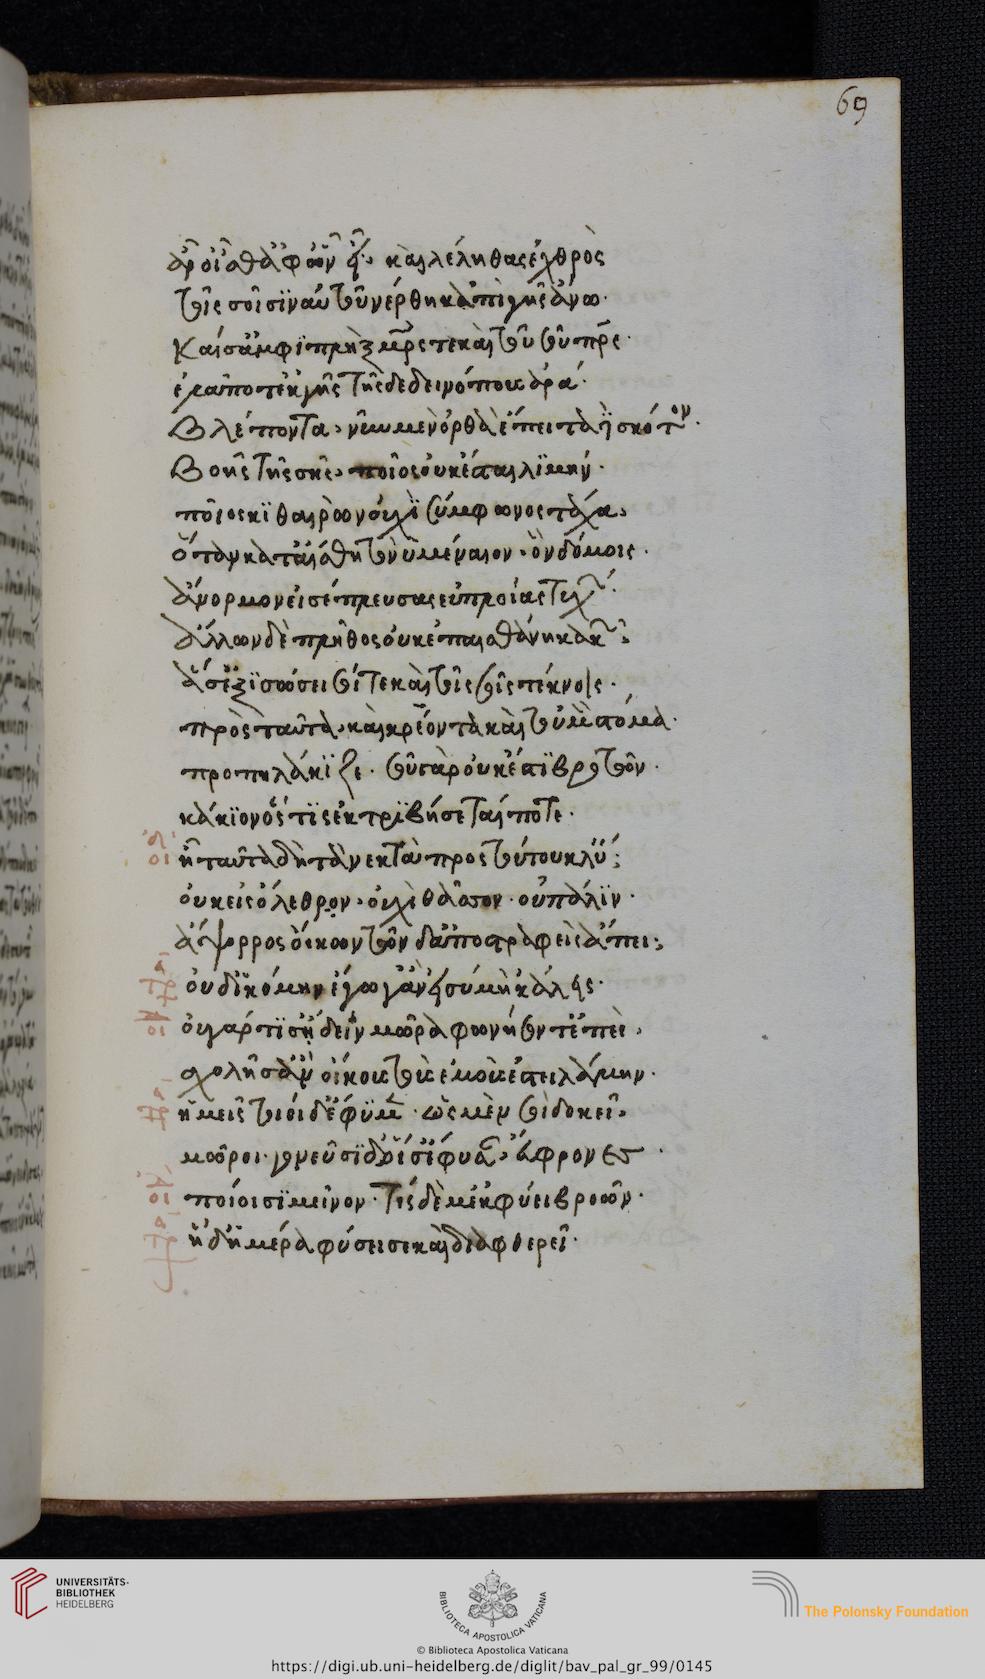 69
ἆρ' οἶσθ' ἀφ' ὧν εἶ· καὶ λέληθας ἐχθρὸς
τοῖς σοῖσιν αὐτοῦ νέρθη κἀπὶ γῆς ἄνω·
καί σ' ἀμφιπλὴξ μητρός τε καὶ τοῦ σοῦ πατρός·
ἐλᾷ ποτ' ἐκ γῆς τῆσδε δεινόπους ἀρά·
βλέποντα νῦν μὲν ὀρθὰ ἔπειτα δὲ σκότον·
βοῆς τῆς σῆς ποῖος οὐκ ἔσται λιμήν·
ποῖος κιθαιρὼν οὐχὶ σύμφωνος τάχα,
ὅταν καταίσθῃ τὸν ὑμέναιον· ὃν δόμοις·
ἄνορμον εἰσέπλευσας εὐπλοίας τυχών·
ἄλλων δὲ πλῆθος οὐκ ἐπαισθάνῃ κακῶν·
ἅ σ' ἐξισώσει σοί τε καὶ τοῖς σοῖς τέκνοις·
πρὸς ταῦτα· καὶ κρέοντα καὶ τοὐμὸν στόμα·
προπηλάκιζε· σοῦ γὰρ οὐκ ἔστι βροτῶν·
κάκιον ὅστις ἐκτριβήσεταί ποτε·
οἰδ ἦ ταῦτα δῆτ' ἀνεκτὰ πρὸς τούτου κλύειν;
οὐκ εἰς ὄλεθρον· οὐχὶ θᾶσσον· οὐ πάλιν·
ἄψορρος οἴκων τῶνδ' ἀποστραφεὶς ἄπει;
τειρ οὐδ' ἱκόμην ἔγωγ' ἂν εἰ σὺ μὴ κάλεις·
οἰδ οὐ γάρ τί σ' ᾔδειν μῶρα φωνήσοντ' ἐπεὶ,
σχολῇ σ' ἂν οἴκους τοὺς ἐμοὺς ἐστειλάμην·
τειρ ἡμεῖς τοιοίδ' ἔφυμεν· ὡς μὲν σοὶ δοκεῖ,
μῶροι· γονεῦσι δ' οἵ σ' ἔφυσαν, ἔμφρονες·
οἰδ ποίοισι μεῖνον· τίς δὲ μ' ἐκφύει βροτῶν·
τειρ ἥδ' ἡμέρα φύσει σε καὶ διαφθερεῖ·
UNIVERSITÄTS-
BIBLIOTHEK
HEIDELBERG
BIBLIOTECA APOSTOLICA VATICANA
The Polonsky Foundation
© Biblioteca Apostolica Vaticana
https://digi.ub.uni-heidelberg.de/diglit/bav_pal_gr_99/0145